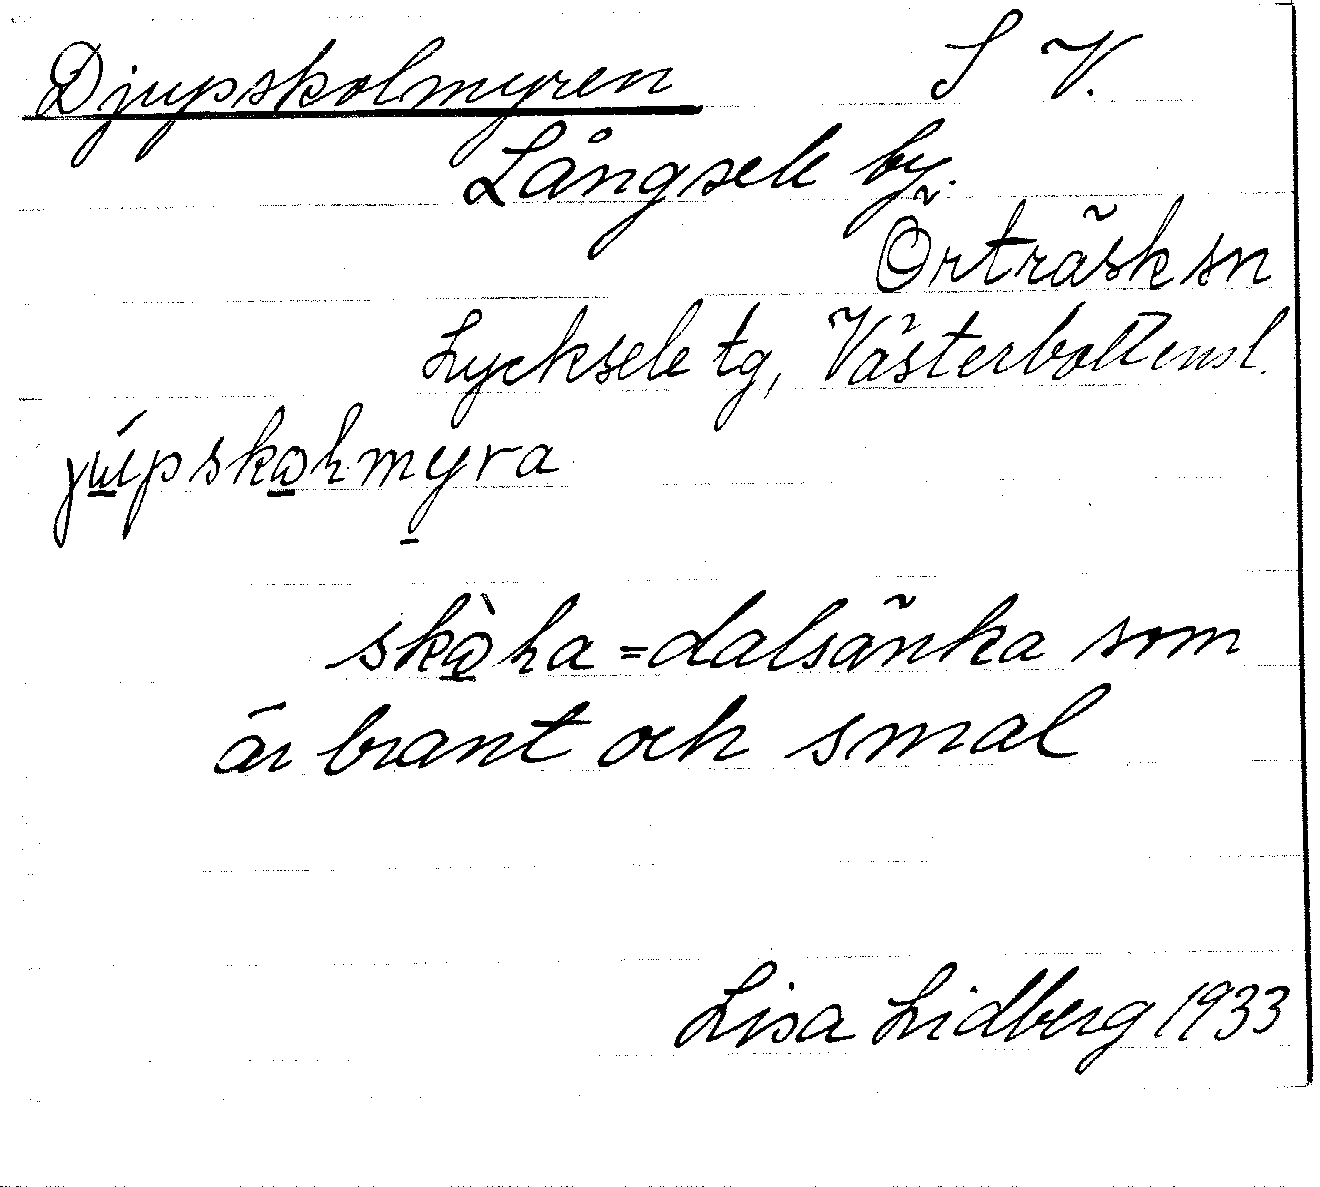 Djupskolmyren S V.
Långsele by.
Örträsk sn
Lycksele tg, Västerbottensl.
júpskohmyra
skòha = dalsänka som
är brant och smal
Lisa Lidberg 1933